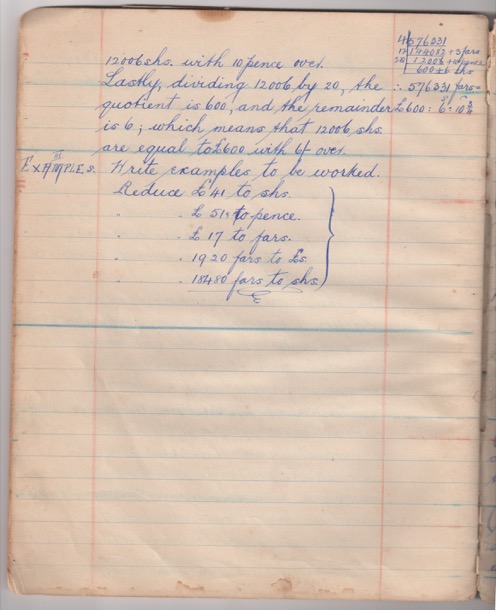 12006 shs. with 10 pence over.
Lastly, dividing 12006 by 20, the
quotient is 600, and the remainder
is 6; which means that 12006 shs.
are equal to £600 with 6/ over.
4 | 576331
12 | 144082 + 3 fars
20 | 12006 + 10 pence
600 + 6 shs
∴ 576331 fars =
£600: 6: 10 3/4
III
EXAMPLES. Write examples to be worked.
Reduce £41 to shs.
" . £ 51 to pence.
" . £ 17 to fars.
" . 1920 fars to £s.
" . 18480 fars to shs.